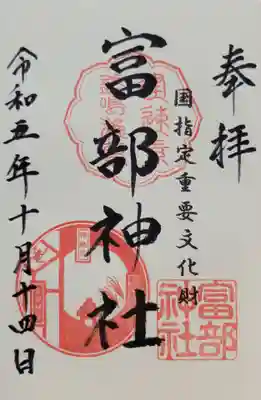 奉拝
国指定重要文化財
富部神社
令和五年十月十四日
富部
神社